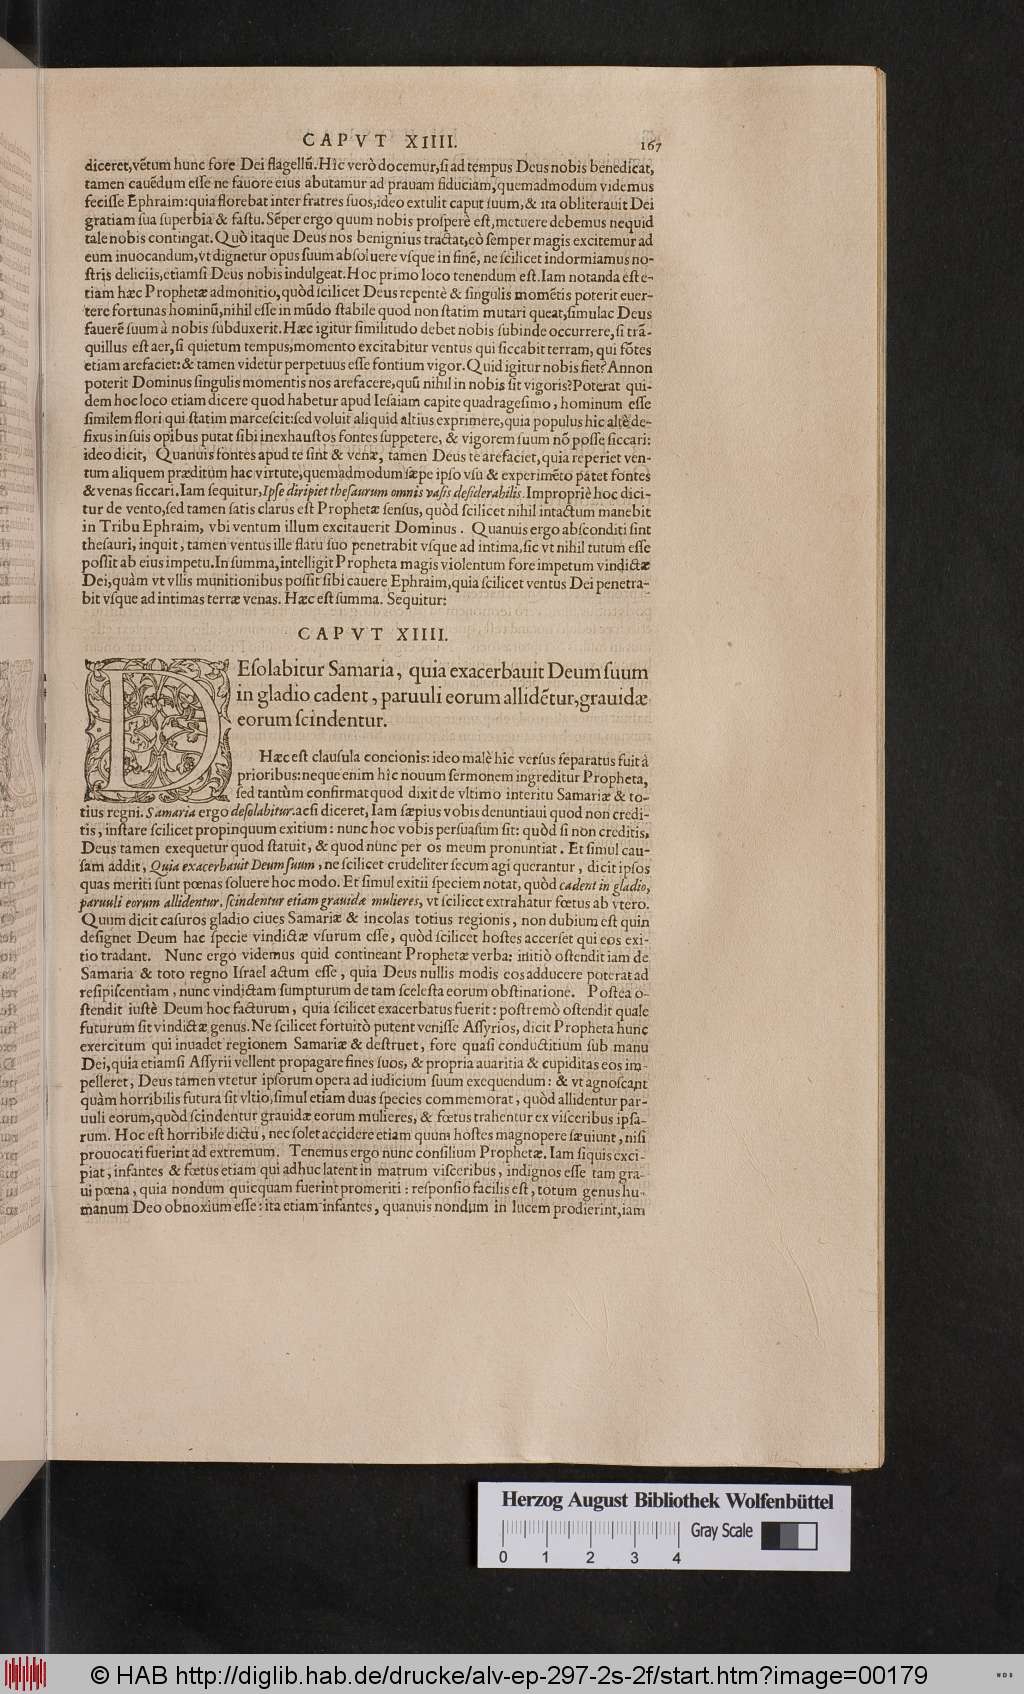 CAPVT XIIII. 167
diceret, vẽtum hunc fore Dei flagellũ. Hîc verò docemur, ſi ad tempus Deus nobis benedicat,
tamen cauẽdum eſſe ne fauore eius abutamur ad prauam fiduciam, quemadmodum videmus
feciſſe Ephraim: quia florebat inter fratres ſuos, ideo extulit caput ſuum, & ita obliterauit Dei
gratiam ſua ſuperbia & faſtu. Sẽper ergo quum nobis proſperè eſt, metuere debemus nequid
tale nobis contingat. Quò itaque Deus nos benignius tractat, eò ſemper magis excitemur ad
eum inuocandum, vt dignetur opus ſuum abſoluere vſque in finẽ, ne ſcilicet indormiamus no-
ſtris deliciis, etiamſi Deus nobis indulgeat. Hoc primo loco tenendum eſt. Iam notanda eſt e-
tiam hæc Prophetæ admonitio, quòd ſcilicet Deus repentè & ſingulis momẽtis poterit euer-
tere fortunas hominũ, nihil eſſe in mũdo ſtabile quod non ſtatim mutari queat, ſimulac Deus
fauorẽ ſuum à nobis ſubduxerit. Hæc igitur ſimilitudo debet nobis ſubinde occurrere, ſi trã-
quillus eſt aer, ſi quietum tempus, momento excitabitur ventus qui ſiccabit terram, qui fõtes
etiam arefaciet: & tamen videtur perpetuus eſſe fontium vigor. Quid igitur nobis fiet? Annon
poterit Dominus ſingulis momentis nos arefacere, quũ nihil in nobis ſit vigoris? Poterat qui-
dem hoc loco etiam dicere quod habetur apud Ieſaiam capite quadrageſimo, hominum eſſe
ſimilem flori qui ſtatim marceſcit: ſed voluit aliquid altius exprimere, quia populus hic altè de-
fixus in ſuis opibus putat ſibi inexhauſtos fontes ſuppetere, & vigorem ſuum nõ poſſe ſiccari:
ideo dicit, Quanuis fontes apud te ſint & venæ, tamen Deus te arefaciet, quia reperiet ven-
tum aliquem præditum hac virtute, quemadmodum ſæpe ipſo vſu & experimẽto patet fontes
& venas ſiccari. Iam ſequitur, Ipſe diripiet theſaurum omnis vaſis deſiderabilis. Impropriè hoc dici-
tur de vento, ſed tamen ſatis clarus eſt Prophetæ ſenſus, quòd ſcilicet nihil intactum manebit
in Tribu Ephraim, vbi ventum illum excitauerit Dominus. Quanuis ergo abſconditi ſint
theſauri, inquit, tamen ventus ille flatu ſuo penetrabit vſque ad intima, ſic vt nihil tutum eſſe
poſſit ab eius impetu. In ſumma, intelligit Propheta magis violentum fore impetum vindictæ
Dei, quàm vt vllis munitionibus poſſit ſibi cauere Ephraim, quia ſcilicet ventus Dei penetra-
bit vſque ad intimas terræ venas. Hæc eſt ſumma. Sequitur:
CAPVT XIIII.
DEſolabitur Samaria, quia exacerbauit Deum ſuum
in gladio cadent, paruuli eorum allidẽtur, grauidæ
eorum ſcindentur.
Hæc eſt clauſula concionis: ideo malè hîc verſus ſeparatus fuit à
prioribus: neque enim hîc nouum ſermonem ingreditur Propheta,
ſed tantùm confirmat quod dixit de vltimo interitu Samariæ & to-
tius regni. Samaria ergo deſolabitur. ac ſi diceret, Iam ſæpius vobis denuntiaui quod non credi-
tis, inſtare ſcilicet propinquum exitium: nunc hoc vobis perſuaſum ſit: quòd ſi non creditis,
Deus tamen exequetur quod ſtatuit, & quod nunc per os meum pronuntiat. Et ſimul cau-
ſam addit, Quia exacerbauit Deum ſuum, ne ſcilicet crudeliter ſecum agi querantur, dicit ipſos
quas meriti ſunt pœnas ſoluere hoc modo. Et ſimul exitii ſpeciem notat, quòd cadent in gladio,
paruuli eorum allidentur, ſcindentur etiam grauidæ mulieres, vt ſcilicet extrahatur fœtus ab vtero.
Quum dicit caſuros gladio ciues Samariæ & incolas totius regionis, non dubium eſt quin
deſignet Deum hac ſpecie vindictæ vſurum eſſe, quòd ſcilicet hoſtes accerſet qui eos exi-
tio tradant. Nunc ergo videmus quid contineant Prophetæ verba: initiò oſtendit iam de
Samaria & toto regno Iſrael actum eſſe, quia Deus nullis modis eos adducere poterat ad
reſipiſcentiam, nunc vindictam ſumpturum de tam ſceleſta eorum obſtinatione. Poſtea o-
ſtendit iuſtè Deum hoc facturum, quia ſcilicet exacerbatus fuerit: poſtremò oſtendit quale
futurum ſit vindictæ genus. Ne ſcilicet fortuitò putent veniſſe Aſſyrios, dicit Propheta hunc
exercitum qui inuadet regionem Samariæ & deſtruet, fore quaſi conductitium ſub manu
Dei, quia etiamſi Aſſyrii vellent propagare fines ſuos, & propria auaritia & cupiditas eos im-
pelleret, Deus tamen vtetur ipſorum opera ad iudicium ſuum exequendum: & vt agnoſcant
quàm horribilis futura ſit vltio, ſimul etiam duas ſpecies commemorat, quòd allidentur par-
uuli eorum, quòd ſcindentur grauidæ eorum mulieres, & fœtus trahentur ex viſceribus ipſa-
rum. Hoc eſt horribile dictu, nec ſolet accidere etiam quum hoſtes magnopere ſæuiunt, niſi
prouocati fuerint ad extremum. Tenemus ergo nunc conſilium Prophetæ. Iam ſiquis exci-
piat, infantes & fœtus etiam qui adhuc latent in matrum viſceribus, indignos eſſe tam gra-
ui pœna, quia nondum quicquam fuerint promeriti: reſponſio facilis eſt, totum genus hu-
manum Deo obnoxium eſſe: ita etiam infantes, quanuis nondum in lucem prodierint, iam
Herzog August Bibliothek Wolfenbüttel
Gray Scale
0 1 2 3 4
© HAB http://diglib.hab.de/drucke/alv-ep-297-2s-2f/start.htm?image=00179
WDB